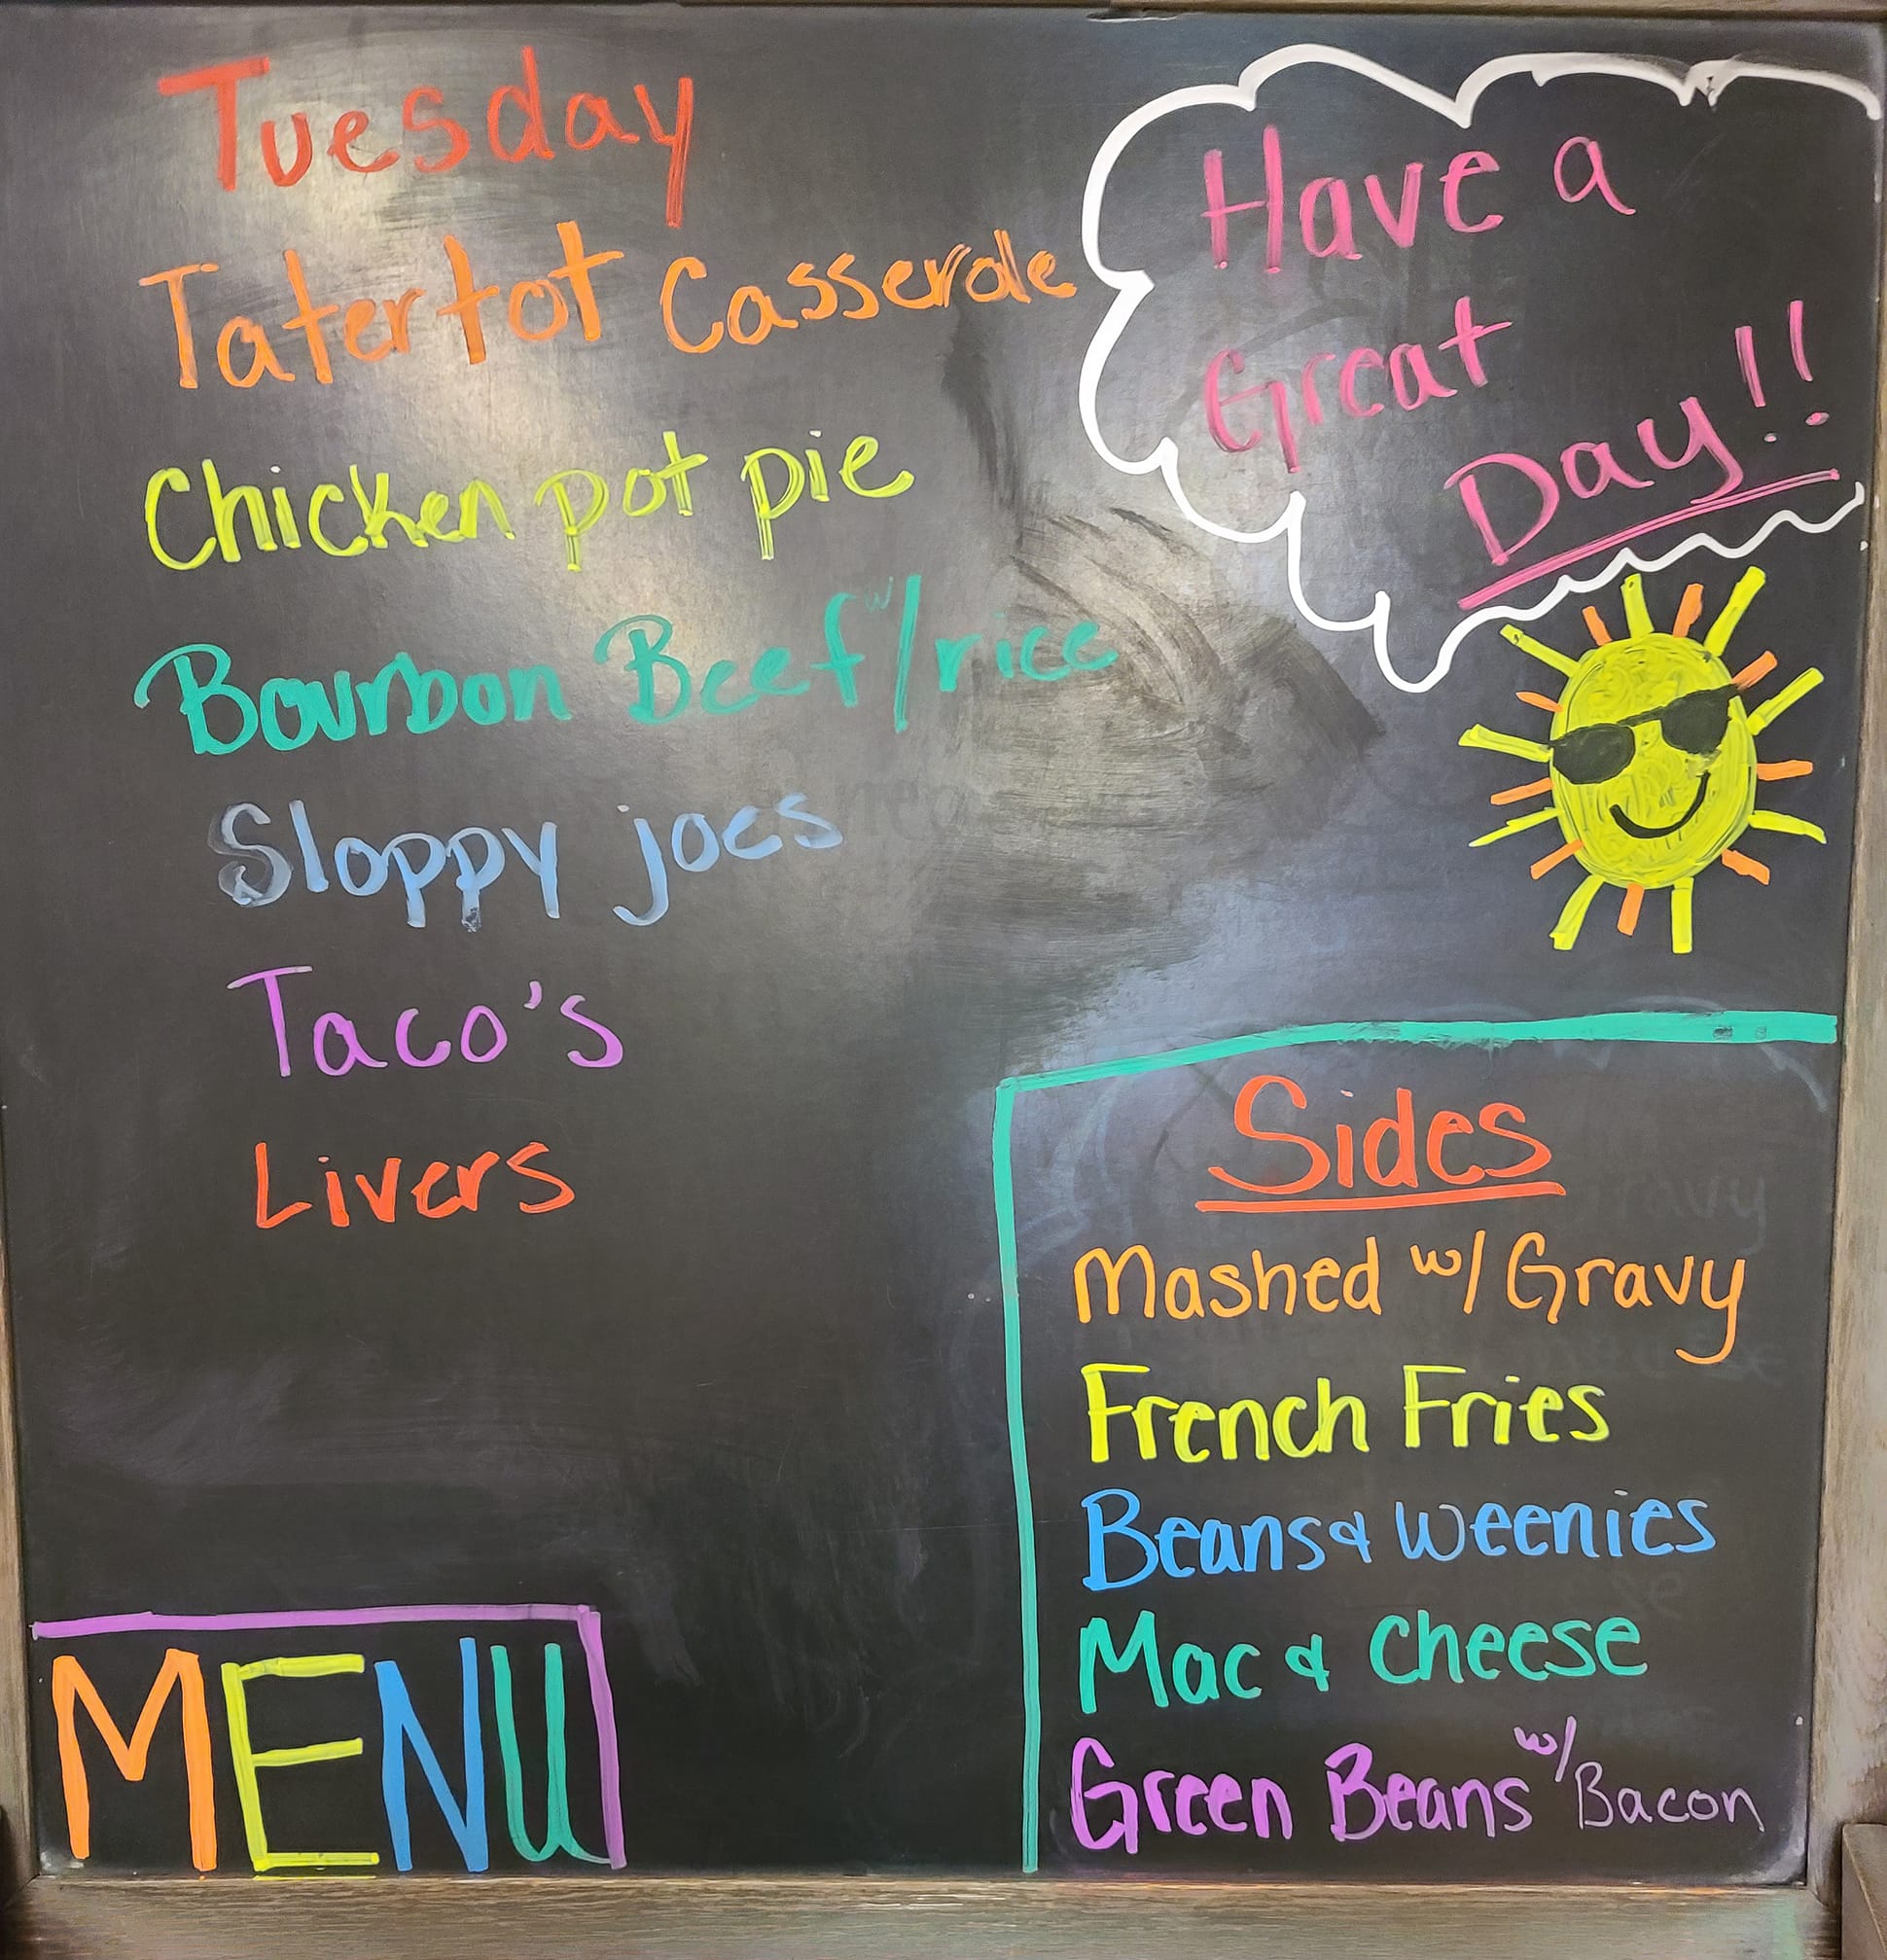 Tuesday
Tatertot Casserole
Chicken pot pie
Bourbon Beef w/rice
Sloppy joes
Taco's
Livers
MENU
Have a
Great
Day!!
Sides
Mashed w/ Gravy
French Fries
Beans & Weenies
Mac & Cheese
Green Beans w/ Bacon